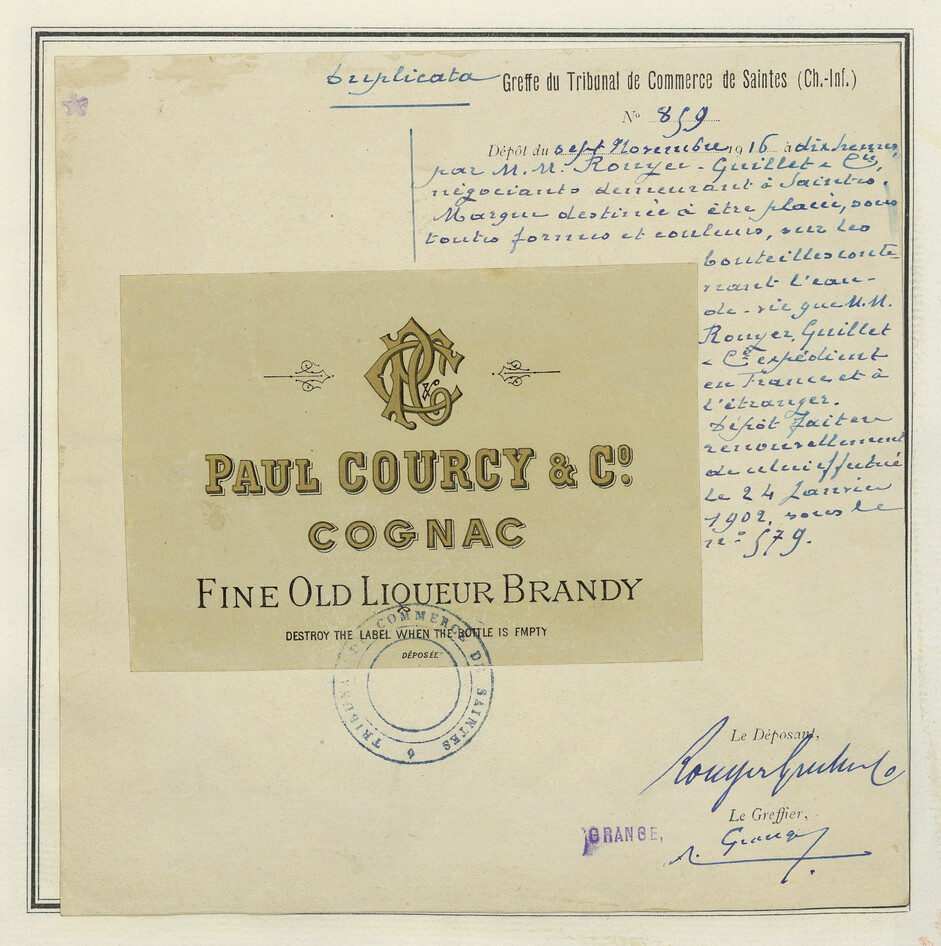 Duplicata
Greffe du Tribunal de Commerce de Saintes (Ch.-Inf.)
N° 859
Dépôt du sept Novembre 1916 à dix heures,
par M.M. Rouyer-Guillet & Cie,
négociants demeurant à Saintes.
Marque destinée à être placée, sous
toutes formes et couleurs, sur les
bouteilles conte-
nant l'eau-
de-vie que M.M.
Rouyer, Guillet
& Cie expédient
en France et à
l'étranger.
Dépôt fait en
renouvellement
de celui effectué
le 24 Janvier
1902, sous le
n° 579.
PAUL COURCY & Co.
COGNAC
FINE OLD LIQUEUR BRANDY
DESTROY THE LABEL WHEN THE BOTTLE IS EMPTY
DÉPOSÉE
TRIBUNAL DE COMMERCE DE SAINTES
Le Déposant,
Rouyer Guillet & Co
Le Greffier,
GRANGE,
A. Grange